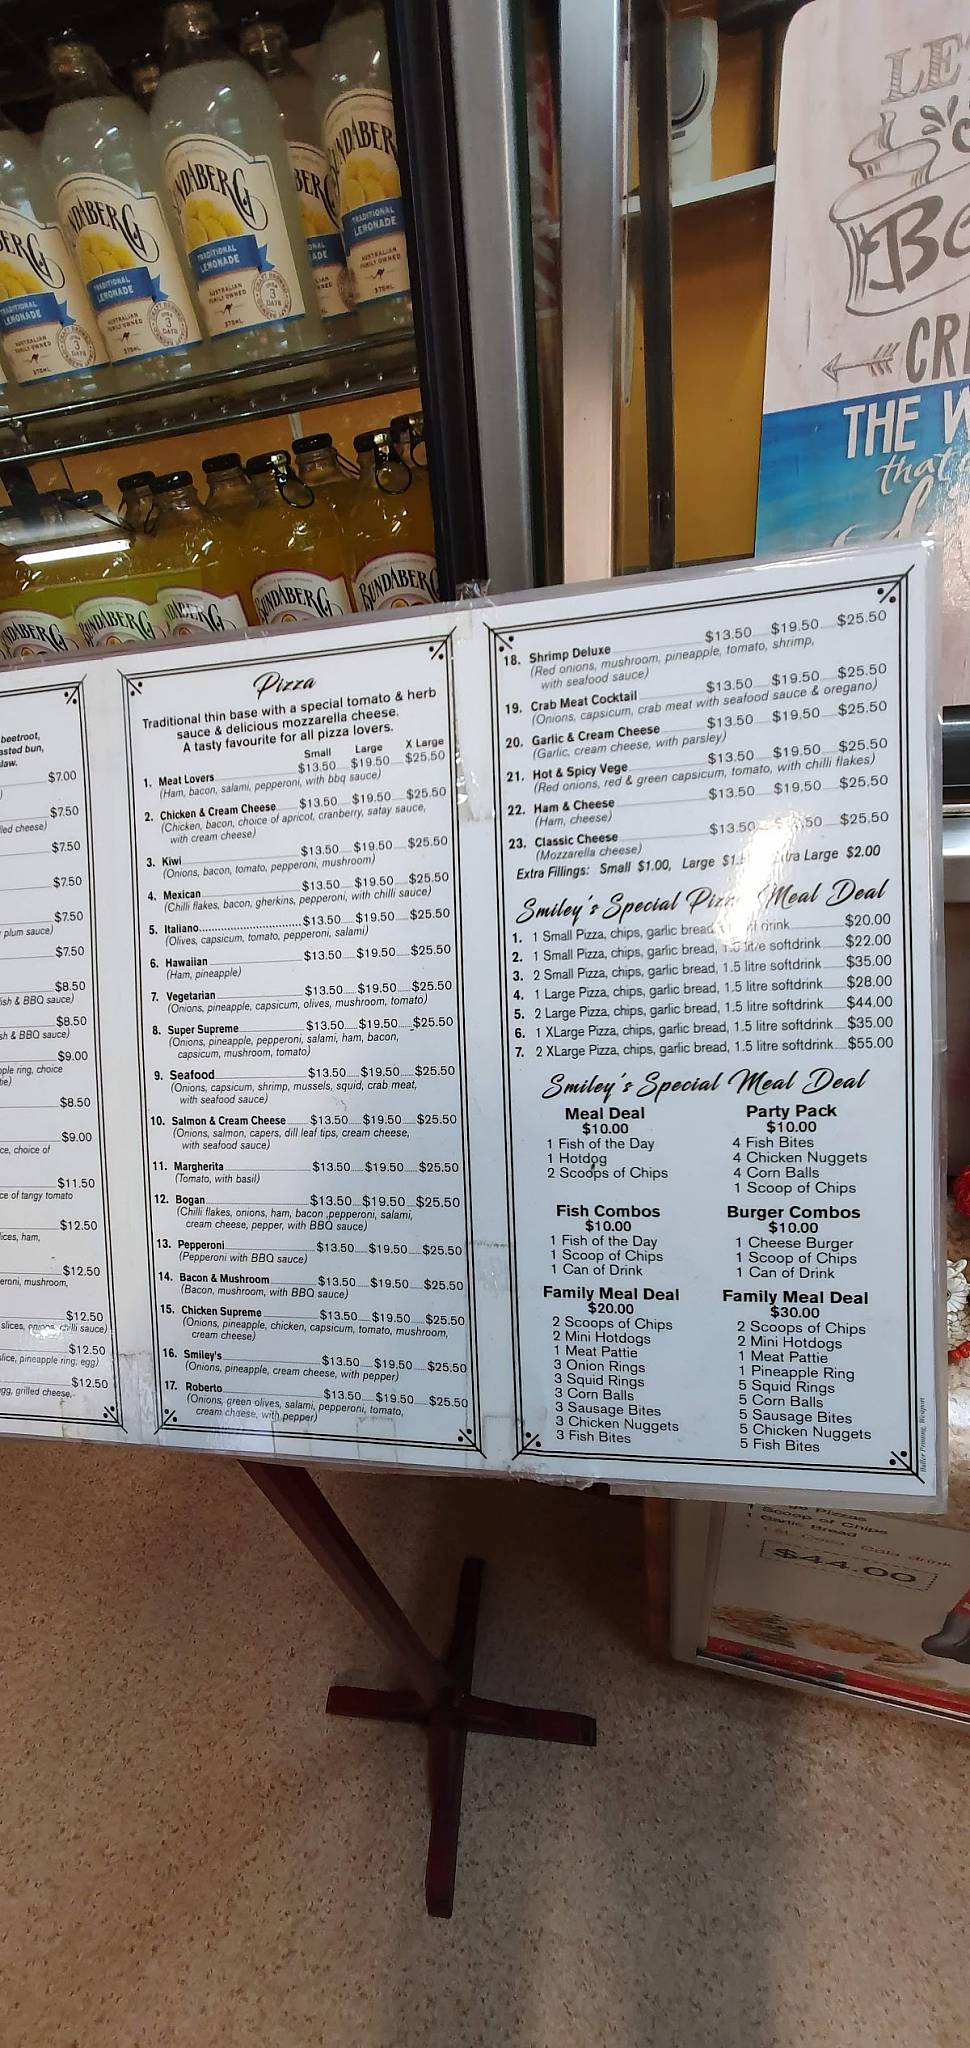 BUNDABERG
TRADITIONAL
LEMONADE
AUSTRALIAN
FAMILY OWNED
375mL
3
DAYS
BUNDABERG
BUNDABERG
BUNDABERG
THE
that
beetroot,
$7.00
$7.50
$7.50
$7.50
$7.50
plum sauce)
$7.50
$8.50
& BBQ sauce)
$8.50
& BBQ sauce)
$9.00
ring, choice
$8.50
$9.00
choice of
$11.50
of tangy tomato
$12.50
ham,
$12.50
mushroom,
$12.50
slices, onions, chilli sauce)
$12.50
slice, pineapple ring, egg)
$12.50
egg, grilled cheese,
Pizza
Traditional thin base with a special tomato & herb
sauce & delicious mozzarella cheese.
A tasty favourite for all pizza lovers.
Small Large X Large
1. Meat Lovers $13.50 $19.50 $25.50
(Ham, bacon, salami, pepperoni, with bbq sauce)
2. Chicken & Cream Cheese $13.50 $19.50 $25.50
(Chicken, bacon, choice of apricot, cranberry, satay sauce,
with cream cheese)
3. Kiwi $13.50 $19.50 $25.50
(Onions, bacon, tomato, pepperoni, mushroom)
4. Mexican $13.50 $19.50 $25.50
(Chilli flakes, bacon, gherkins, pepperoni, with chilli sauce)
5. Italiano $13.50 $19.50 $25.50
(Olives, capsicum, tomato, pepperoni, salami)
6. Hawaiian $13.50 $19.50 $25.50
(Ham, pineapple)
7. Vegetarian $13.50 $19.50 $25.50
(Onions, pineapple, capsicum, olives, mushroom, tomato)
8. Super Supreme $13.50 $19.50 $25.50
(Onions, pineapple, pepperoni, salami, ham, bacon,
capsicum, mushroom, tomato)
9. Seafood $13.50 $19.50 $25.50
(Onions, capsicum, shrimp, mussels, squid, crab meat,
with seafood sauce)
10. Salmon & Cream Cheese $13.50 $19.50 $25.50
(Onions, salmon, capers, dill leaf tips, cream cheese,
with seafood sauce)
11. Margherita $13.50 $19.50 $25.50
(Tomato, with basil)
12. Bogan $13.50 $19.50 $25.50
(Chilli flakes, onions, ham, bacon ,pepperoni, salami,
cream cheese, pepper, with BBQ sauce)
13. Pepperoni $13.50 $19.50 $25.50
(Pepperoni with BBQ sauce)
14. Bacon & Mushroom $13.50 $19.50 $25.50
(Bacon, mushroom, with BBQ sauce)
15. Chicken Supreme $13.50 $19.50 $25.50
(Onions, pineapple, chicken, capsicum, tomato, mushroom,
cream cheese)
16. Smiley's $13.50 $19.50 $25.50
(Onions, pineapple, cream cheese, with pepper)
17. Roberto $13.50 $19.50 $25.50
(Onions, green olives, salami, pepperoni, tomato,
cream cheese, with pepper)
18. Shrimp Deluxe $13.50 $19.50 $25.50
(Red onions, mushroom, pineapple, tomato, shrimp,
with seafood sauce)
19. Crab Meat Cocktail $13.50 $19.50 $25.50
(Onions, capsicum, crab meat with seafood sauce & oregano)
20. Garlic & Cream Cheese $13.50 $19.50 $25.50
(Garlic, cream cheese, with parsley)
21. Hot & Spicy Vege $13.50 $19.50 $25.50
(Red onions, red & green capsicum, tomato, with chilli flakes)
22. Ham & Cheese $13.50 $19.50 $25.50
(Ham, cheese)
23. Classic Cheese $13.50 $25.50
(Mozzarella cheese)
Extra Fillings: Small $1.00, Large Extra Large $2.00
Smiley's Special Pizza Meal Deal
1. 1 Small Pizza, chips, garlic bread, drink $20.00
2. 1 Small Pizza, chips, garlic bread, 1.5 litre softdrink $22.00
3. 2 Small Pizza, chips, garlic bread, 1.5 litre softdrink $35.00
4. 1 Large Pizza, chips, garlic bread, 1.5 litre softdrink $28.00
5. 2 Large Pizza, chips, garlic bread, 1.5 litre softdrink $44.00
6. 1 XLarge Pizza, chips, garlic bread, 1.5 litre softdrink $35.00
7. 2 XLarge Pizza, chips, garlic bread, 1.5 litre softdrink $55.00
Smiley's Special Meal Deal
Meal Deal
$10.00
1 Fish of the Day
1 Hotdog
2 Scoops of Chips
Party Pack
$10.00
4 Fish Bites
4 Chicken Nuggets
4 Corn Balls
1 Scoop of Chips
Fish Combos
$10.00
1 Fish of the Day
1 Scoop of Chips
1 Can of Drink
Burger Combos
$10.00
1 Cheese Burger
1 Scoop of Chips
1 Can of Drink
Family Meal Deal
$20.00
2 Scoops of Chips
2 Mini Hotdogs
1 Meat Pattie
3 Onion Rings
3 Squid Rings
3 Corn Balls
3 Sausage Bites
3 Chicken Nuggets
3 Fish Bites
Family Meal Deal
$30.00
2 Scoops of Chips
2 Mini Hotdogs
1 Meat Pattie
1 Pineapple Ring
5 Squid Rings
5 Corn Balls
5 Sausage Bites
5 Chicken Nuggets
5 Fish Bites
Pizzas
1 Scoop of Chips
1 Garlic Bread
$44.00